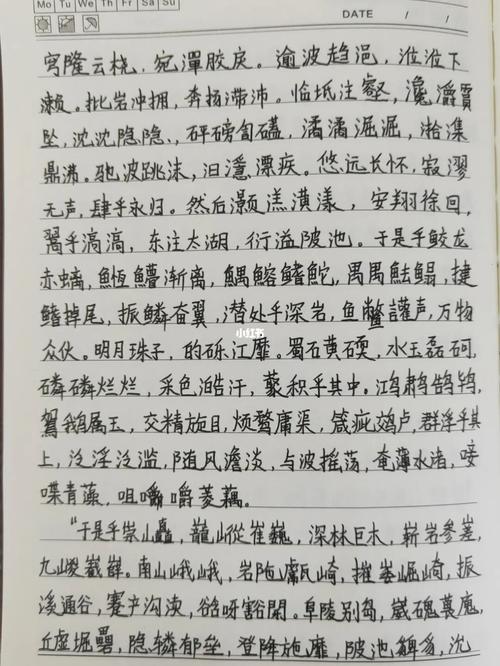 Mo Tu We Th Fr Sa Su
DATE / /
穹隆云桡，宛潬胶戾。逾波趋浥，涖涖下
濑。批岩冲拥，奔扬滞沛。临坻注壑，瀺灂霣
坠，沈沈隐隐，砰磅訇礚，潏潏淈淈，湁潗
鼎沸。驰波跳沫，汩㶁漂疾。悠远长怀，寂漻
无声，肆乎永归。然后灏溔潢漾，安翔徐回，
翯乎滈滈，东注太湖，衍溢陂池。于是乎鲛龙
赤螭，䱍䲛渐离，鰅鳙鳍鮀，禺禺魼鳎，揵
鳍掉尾，振鳞奋翼，潜处乎深岩，鱼鳖讙声，万物
众伙。明月珠子，的砾江靡。蜀石黄碝，水玉磊砢，
磷磷烂烂，采色澔汗，藂积乎其中。鸿鹔鹄鸨，
鴐鹅属玉，交精旋目，烦鹜庸渠，箴疵䴔卢，群浮乎其
上，泛淫泛滥，随风澹淡，与波摇荡，奄薄水渚，唼
喋青藻，咀嚼菱藕。
“于是乎崇山矗矗，巃嵷崔巍，深林巨木，崭岩参差，
九嵕嶻嶭。南山峨峨，岩陁甗崎，摧崣崛崎，振
溪通谷，蹇产沟渎，谽呀豁閕。阜陵别岛，崴磈葨廆，
丘虚堀礨，隐辚郁垒，登降施靡，陂池貏豸，沇
小红书